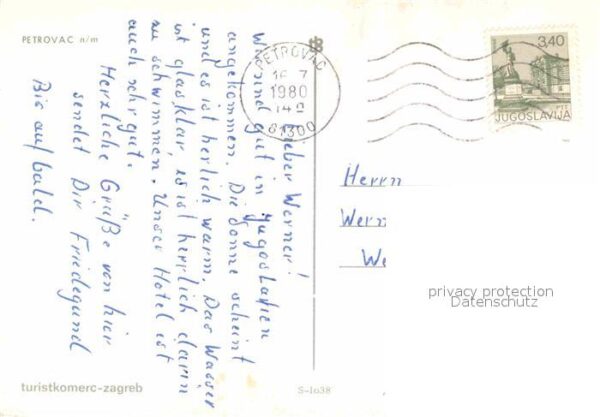 PETROVAC n/m
Lieber Werner!
Wir sind gut in Jugoslavien
angekommen. Die Sonne scheint
und es ist herlich warm, Das Wasser
ist glasklar, es ist herrlich darin
zu schwimmen. Unser Hotel ist
auch sehr gut.
Herzliche Grüße von hier
sendet Dir Friedegund
Bis auf bald.
turistkomerc-zagreb
S-1638
PETROVAC
16 7
1980
14
81300
3,40
PTT
JUGOSLAVIJA
Herrn
Wern
We
privacy protection
Datenschutz